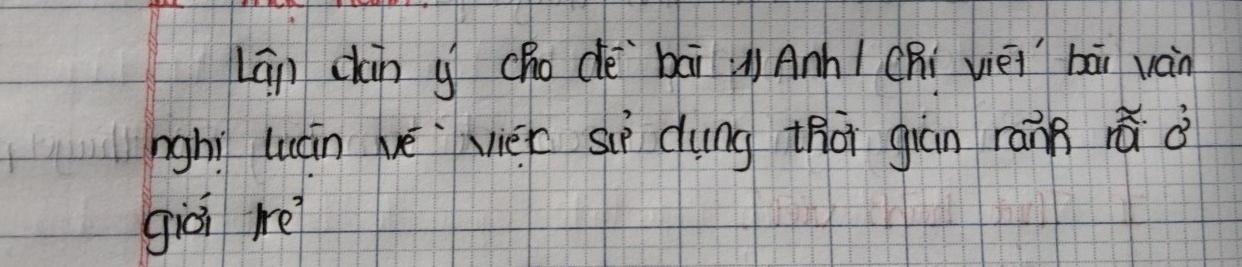 Lập dàn ý cho đề bài 1) Anh / Chị viết bài văn
nghị luận về việc sử dụng thời gian rảnh rỗi ở
giới trẻ